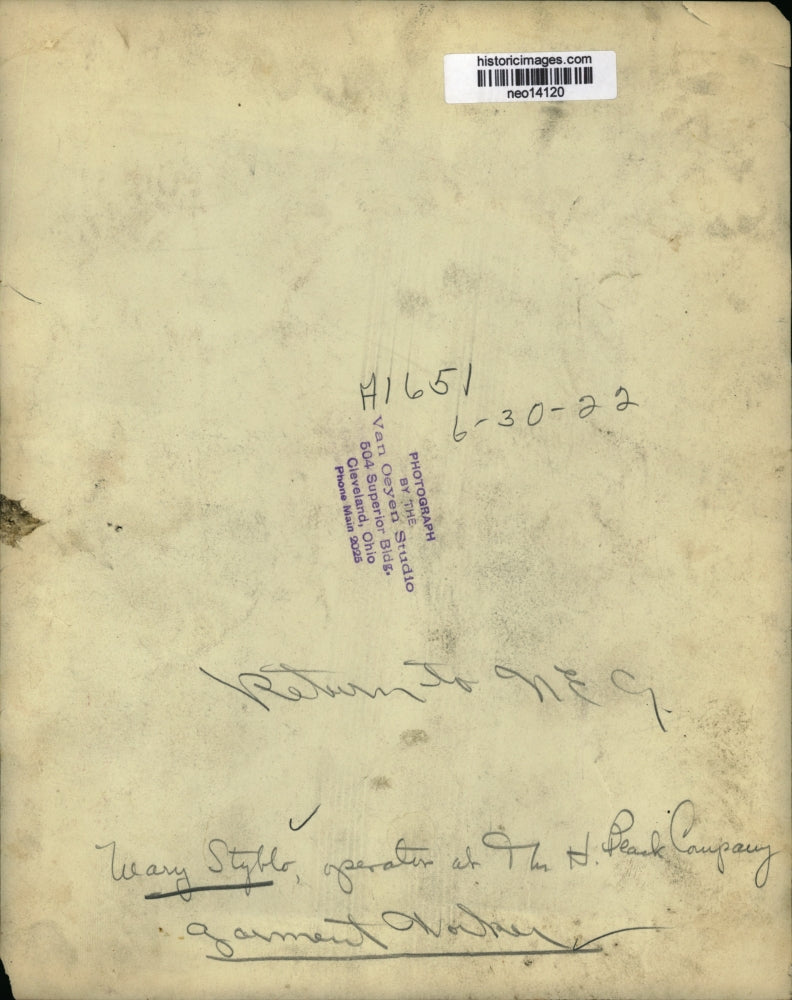 historicimages.com
neo14120
A1651
6-30-22
PHOTOGRAPH
BY THE
Van Oeyen Studio
504 Superior Bldg.
Cleveland, Ohio
Phone Main 2025
Return to NEG.
Mary Styblo, operator at The H. Black Company
Garment Worker